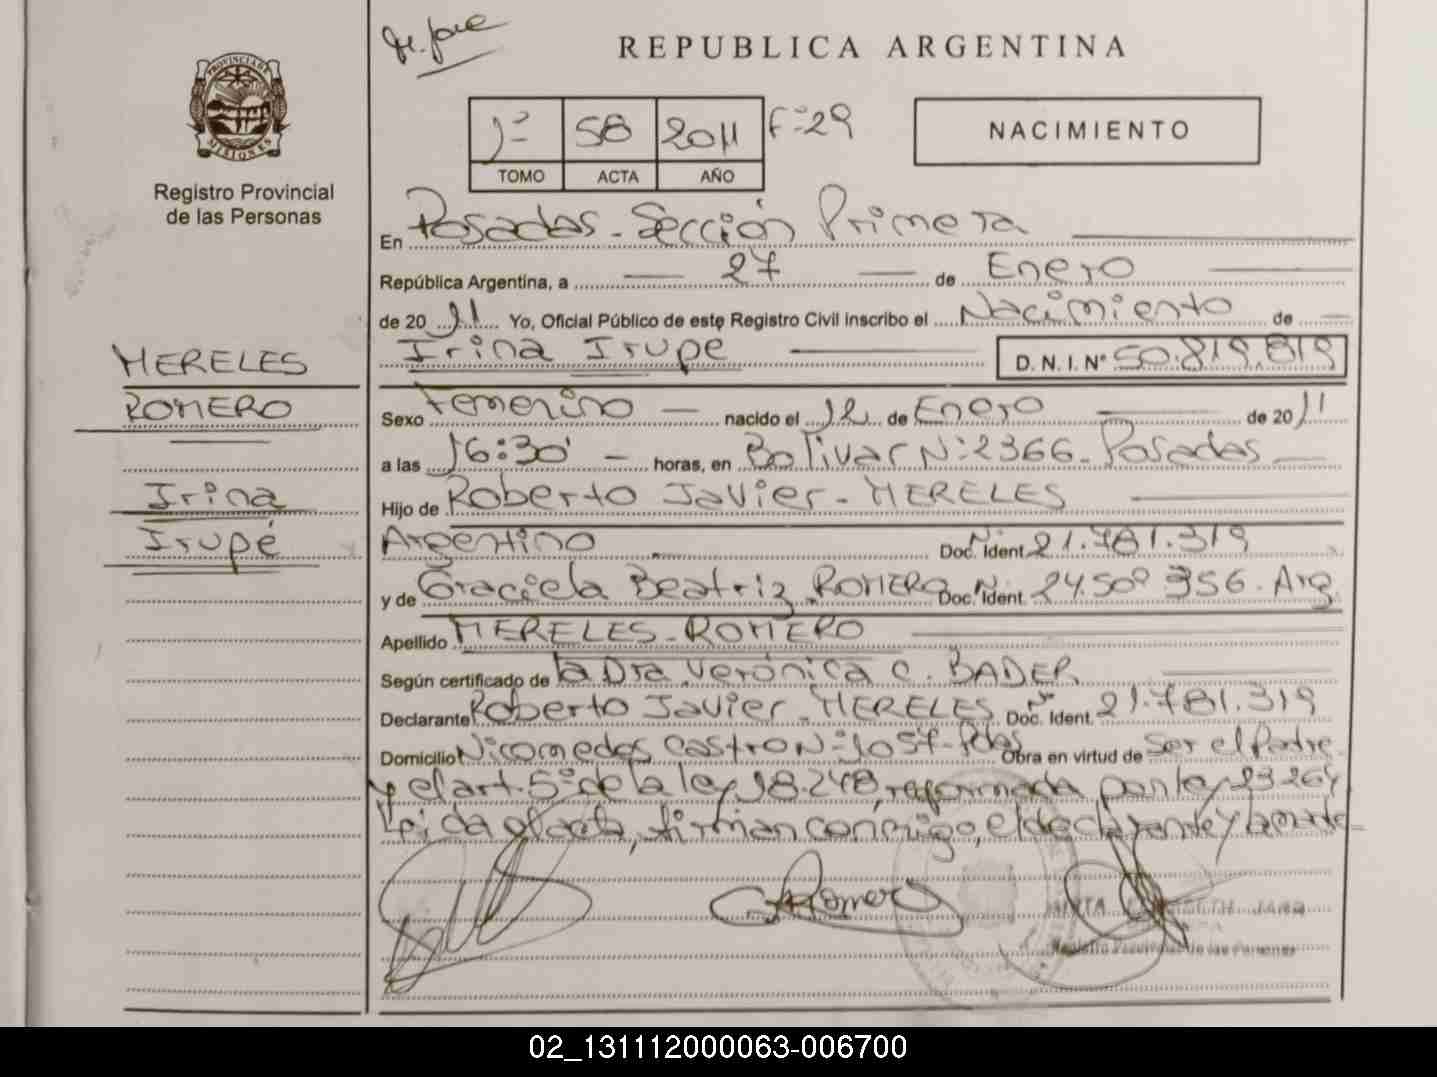 REPUBLICA ARGENTINA
PROVINCIA DE
MISIONES
Registro Provincial
de las Personas
1º 58 2011 Fº 29
TOMO ACTA AÑO
NACIMIENTO
En Posadas - Sección Primera
República Argentina, a 27 de Enero
de 20 11 Yo, Oficial Público de este Registro Civil inscribo el Nacimiento de
Irina Irupe D. N. I. Nº 50.819.819
MERELES
ROMERO
Irina
Irupé
Sexo Femenino nacido el 12 de Enero de 20 11
a las 16:30' horas, en Bolivar Nº 2366 - Posadas
Hijo de Roberto Javier - MERELES
Argentino Doc. Nº Ident. 21.781.319
y de Graciela Beatriz ROMERO Doc. Nº Ident. 24.509 356 - Arg
Apellido MERELES - ROMERO
Según certificado de la Dra Verónica C. BADER
Declarante Roberto Javier - MERELES Doc. Nº Ident. 21.781.319
Domicilio Nicomedes Castro Nº 1057 - Pdas Obra en virtud de Ser el Padre
y el art. 5º de la ley 18.248, reformada por ley 23264
Leida el acta, firman conmigo, el declarante y la madre
Romero
Registro Provincial de las Personas
02_131112000063-006700